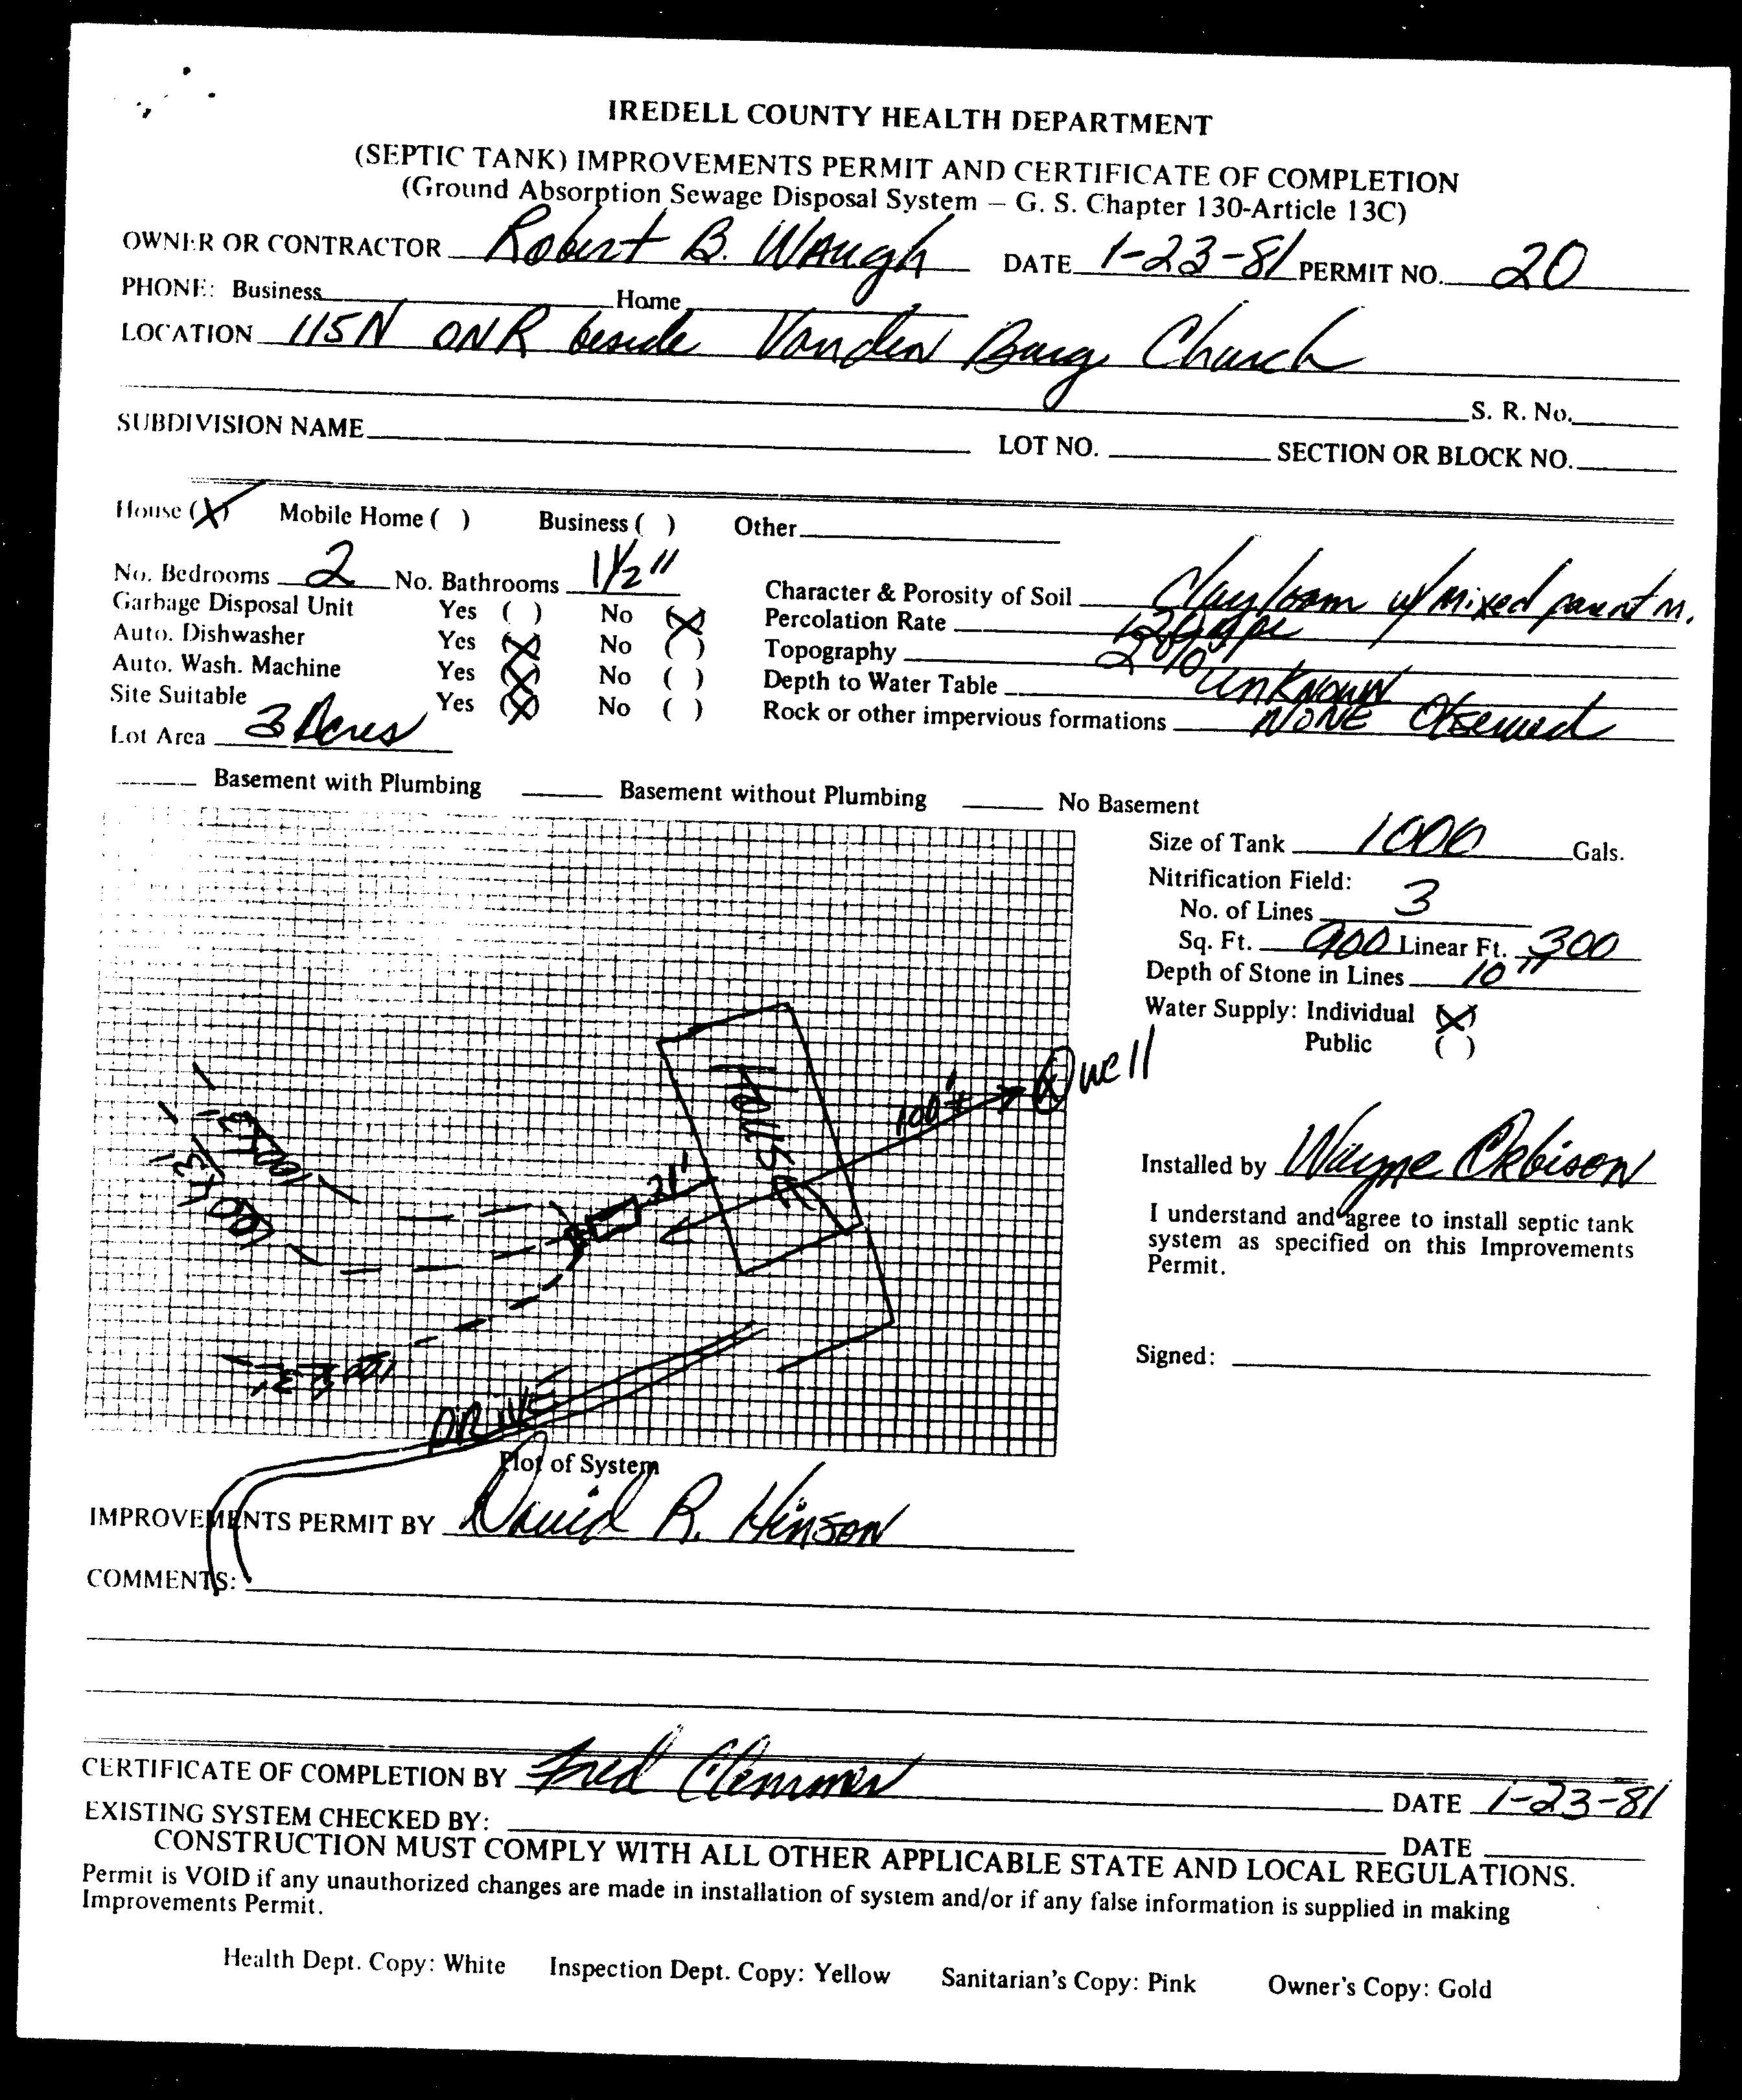 IREDELL COUNTY HEALTH DEPARTMENT
(SEPTIC TANK) IMPROVEMENTS PERMIT AND CERTIFICATE OF COMPLETION
(Ground Absorption Sewage Disposal System – G. S. Chapter 130-Article 13C)
OWNER OR CONTRACTOR Robert B. Waugh DATE 1-23-81 PERMIT NO. 20
PHONE: Business Home
LOCATION 115N ON R beside Vanden Burg Church
S. R. No.
SUBDIVISION NAME LOT NO. SECTION OR BLOCK NO.
House (X) Mobile Home ( ) Business ( ) Other
No. Bedrooms 2 No. Bathrooms 1 1/2 "
Garbage Disposal Unit Yes ( ) No (X)
Auto. Dishwasher Yes (X) No ( )
Auto. Wash. Machine Yes (X) No ( )
Site Suitable Yes (X) No ( )
Lot Area 3 Acres
Character & Porosity of Soil Clay loam w/ mixed parent m.
Percolation Rate
Topography 2%
Depth to Water Table unknown
Rock or other impervious formations NONE Observed
Basement with Plumbing Basement without Plumbing No Basement
Size of Tank 1000 Gals.
Nitrification Field:
No. of Lines 3
Sq. Ft. 900 Linear Ft. 300
Depth of Stone in Lines 10"
Water Supply: Individual (X)
Public ( )
House
100'+
well
21'
100'x3'
100'x3'
100'x3'
DRIVE
Installed by Wayne Orbison
I understand and agree to install septic tank
system as specified on this Improvements
Permit.
Signed:
Plot of System
IMPROVEMENTS PERMIT BY David R. Hinson
COMMENTS:
CERTIFICATE OF COMPLETION BY Fred Clemmer DATE 1-23-81
EXISTING SYSTEM CHECKED BY: DATE
CONSTRUCTION MUST COMPLY WITH ALL OTHER APPLICABLE STATE AND LOCAL REGULATIONS.
Permit is VOID if any unauthorized changes are made in installation of system and/or if any false information is supplied in making
Improvements Permit.
Health Dept. Copy: White Inspection Dept. Copy: Yellow Sanitarian's Copy: Pink Owner's Copy: Gold